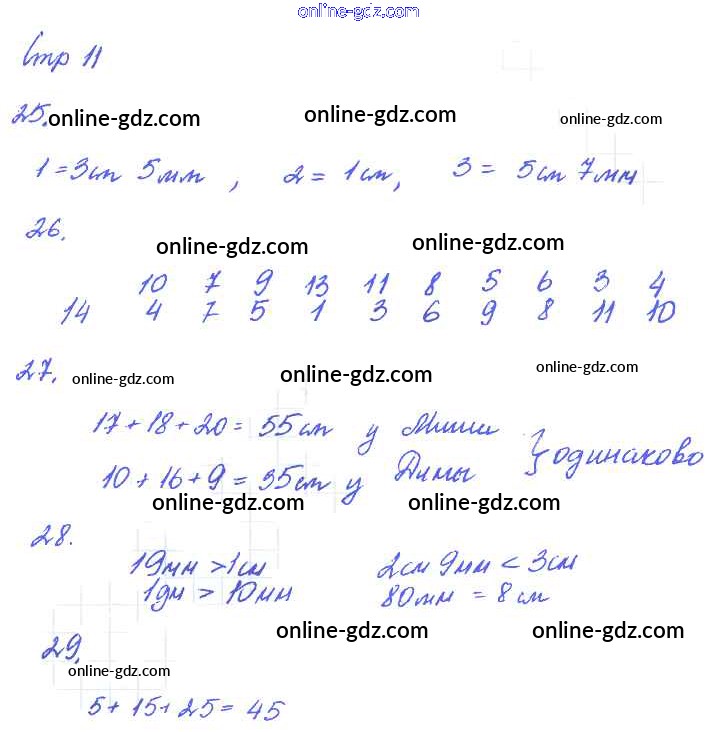 online-gdz.com
Стр 11
25. online-gdz.com online-gdz.com online-gdz.com
1 = 3см 5мм , 2 = 1см, 3 = 5см 7мм
26.
online-gdz.com online-gdz.com
10 7 9 13 11 8 5 6 3 4
14 4 7 5 1 3 6 9 8 11 10
27. online-gdz.com online-gdz.com online-gdz.com
17 + 18 + 20 = 55см у Миши } одинаково
10 + 16 + 9 = 35см у Димы
online-gdz.com online-gdz.com
28.
19мм > 1см 2см 9мм < 3см
1дм > 10мм 80мм = 8см
online-gdz.com online-gdz.com
29.
online-gdz.com
5 + 15 + 25 = 45